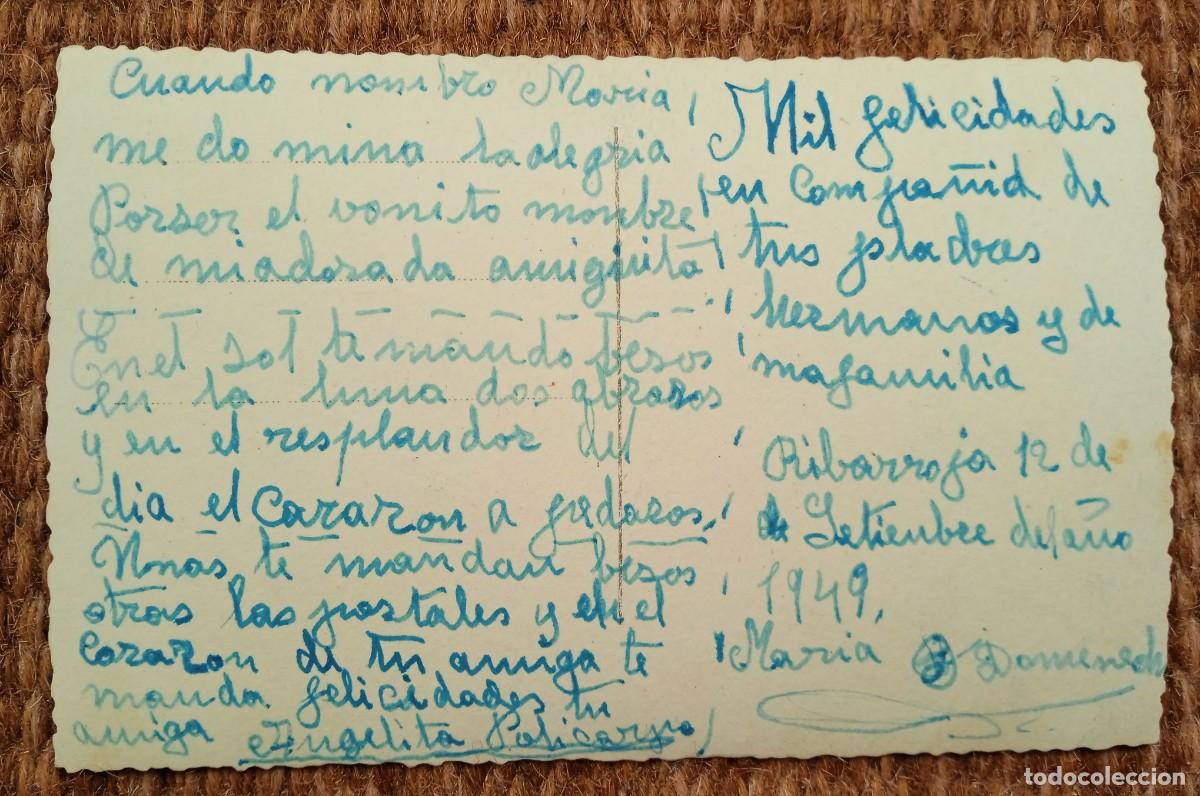 Cuando nombro Maria
me do mina la alegria
Porser el vonito nombre
de miadorada amiguita
En el sol te mando besos
en la luna dos abrazos
y en el resplandor del
dia el Corazon a pedazos,
Unas te mandan besos
otras las postales y en el
Corazon de tu amiga te
manda felicidades tu
amiga Angelita Policarpo
Mil felicidades
en Compañia de
tus padres
hermanos y de
mafamilia
Ribarroja 12 de
de Setienbre del año
1949,
Maria Domenech
todocoleccion